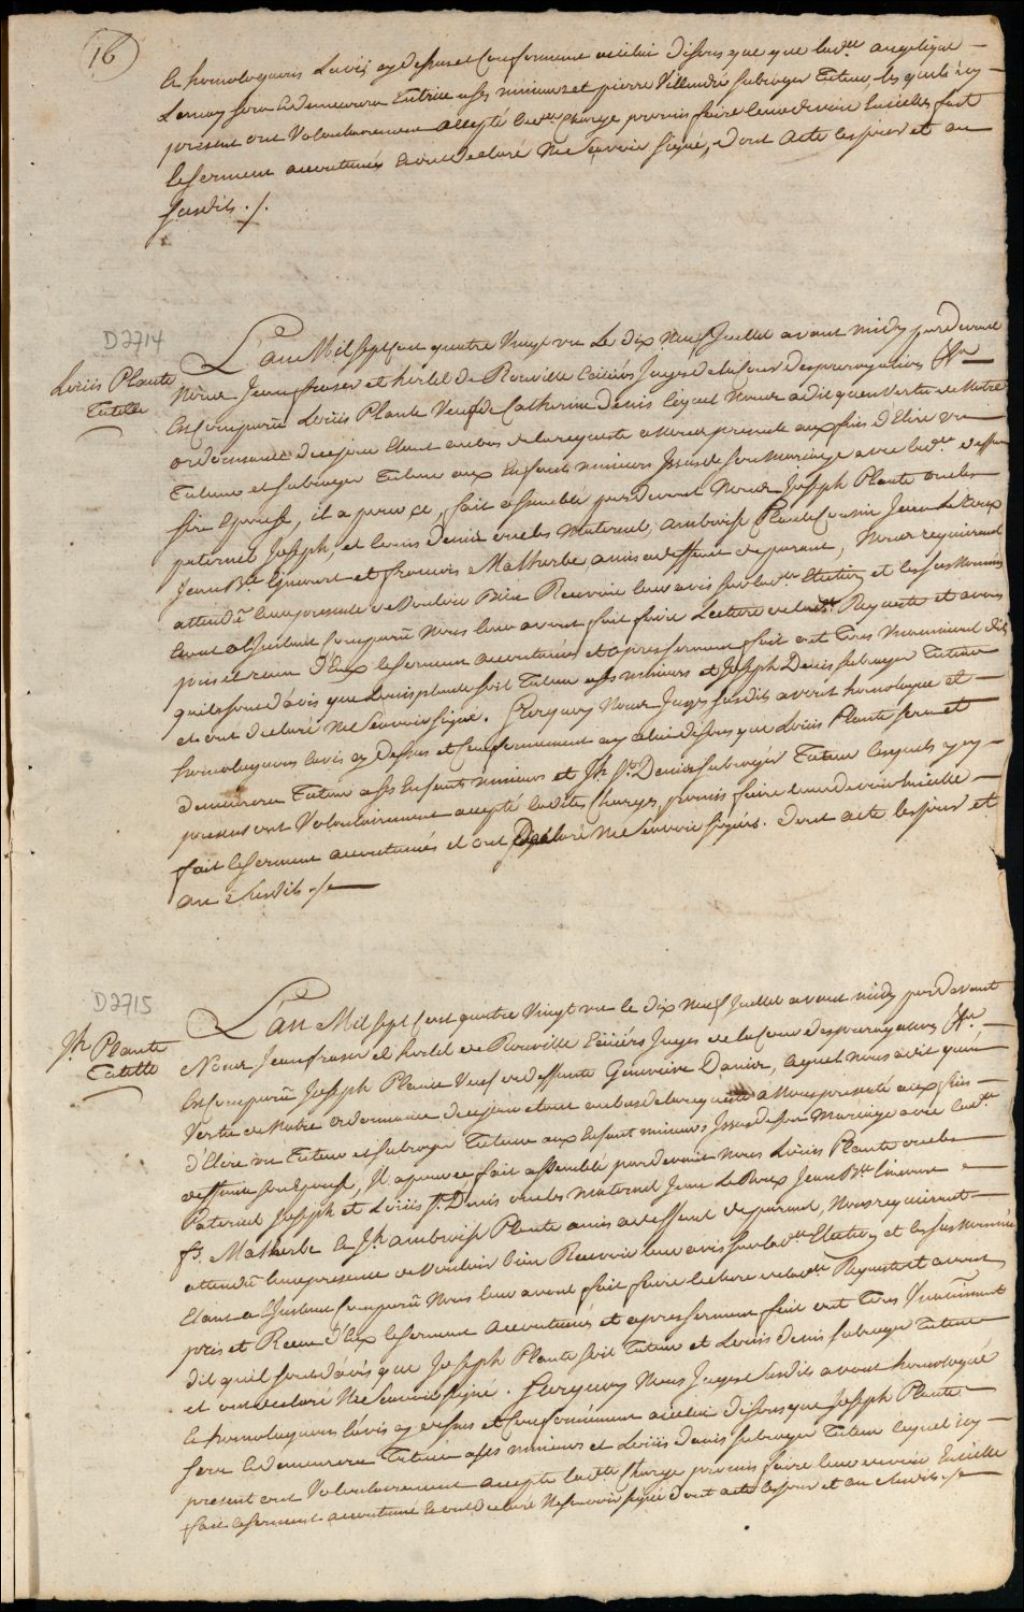 16
et homologuons Lavis cy dessus et Conformement a icelui disons que que lad.te angelique
Lemay sera et demeurera Tutrice a ses mineurs et pierre Villandré subroger Tuteur, lesquels icy
present ont Volontairement accepté lad.te Charge promis faire leur devoir en icelle, fait
le serment accoutumés et ont declaré ne sçavoir signé, dont acte les jour et an
susdits ./.
D2714
Loüis Plante
Tutelle
L'an Mil sept cent quatre Vingt un Le dix neuf Juillet avant midy pardevant
Nous Jean fraser et hertel De Rouville Ecüiers Juges de la Cour des prerogatives &a
Est Comparû Loüis Plante Veuf de Catherine Denis lequel Nous a dit qu'en Vertu de Notre
ordonnance de ce jour Etant au bas de la requeste a Nous presenté aux fins d'Elire un
Tuteur et subroger Tuteur aux Enfants mineurs Issus de son Mariage avec lad.te deffunte
son Epouse, il a pour ce, fait assemblé pardevant Nous Joseph Plante oncle
paternel, Joseph, et Louis Denis oncles maternel, ambroise Plante Cousin Jean Le Roux
Jean B.te Emerant et françois Malherbe amis a deffaut de parant, Nous requierant
attendû leur presence de Vouloir Bien Recevoir leur avis sur lad.te Election et les sus Nommés
Etant a l'Instant Comparû Nous leur avons fait faire Lecture de lad.te Requeste et avons
pris et reçu d'Eux le serment accoutumés et apres serment fait ont Tous Unanimement dit
qu'ils sont d'avis que Louis plante soit Tuteur a ses mineurs et Joseph Denis subroger Tuteur
et ont declaré ne sçavoir signé. Surquoy Nous Juges susdits avons homologué et
homologuons lavis cy Dessus et Conformement a icelui disons que Loüis Plante sera et
demeurera Tuteur a ses Enfants mineurs et Jh S.t Denis subroger Tuteur lesquels icy
present ont Volontairement accepté lad.ites Charges, promis faire leur devoir en icelle
fait le serment accoutumés et ont Declaré ne sçavoir signés. dont acte les jour et
an susdits ./.
D2715
Jh Plante
Tutelle
L'an Mil sept Cent quatre Vingt un le dix neuf Juillet avant midy pardevant
Nous Jean fraser et hertel de Rouville Ecüiers Juges de la Cour des prerogatives &a
Est Comparû Joseph Plante Veuf de deffunte Geneviève Danis, lequel nous a dit qu'en
Vertu de Notre ordonnance de ce jour etant au bas de la requeste a Nous presenté aux fins
d'Elire un Tuteur et subroger Tuteur aux Enfant mineurs Issus de son Mariage avec lad.te
deffunte son Epouse, Il a pour ce, fait assemblé pardevant nous Loüis Plante oncle
Paternel Joseph et Loüis S.t Denis oncles maternel Jean Le Roux Jean B.te Emerant
fs. Malherbe et Jh ambroise Plante amis a deffaut de parant, Nous requierant
attendû leur presence de Vouloir bien Recevoir leur avis sur lad.te Election et les sus Nommés
Etant a l'Instant Comparû Nous leur avons fait faire lecture de lad.te Requeste et avons
pris et Reçu d'Eux le serment accoutumés et apres serment fait ont Tous Unanimement
dit qu'il sont d'avis que Joseph Plante soit Tuteur et Louis Denis subroger Tuteur
et ont declaré Ne sçavoir signé. Surquoy Nous Juges susdits avons homologué
et homologuons lavis cy dessus et Conformement a icelui disons que Joseph Plante
sera et demeurera Tuteur a ses mineurs et Loüis Denis subroger Tuteur lequel icy
present ont Volontairement accepté lad.te Charge promis faire leur devoir En icelle
fait le serment accoutumé et ont declaré Ne sçavoir signé dont acte les jour et an susdits ./.